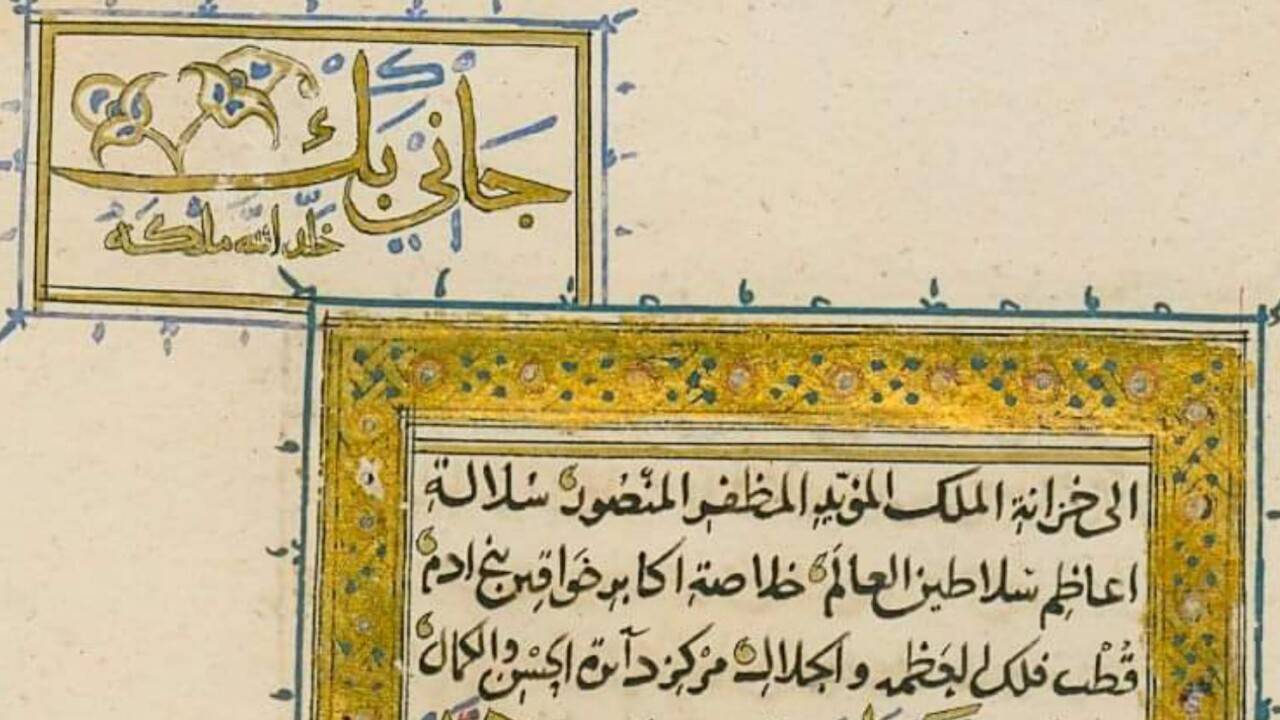 جاني بك
خلد الله ملكه
الى خزانة الملك المؤيد المظفر المنصور سلالة
اعاظم سلاطين العالم خلاصة اكابر خواقين بني ادم
قطب فلك العظمه والجلال مركز دآئرة الحسن والكمال